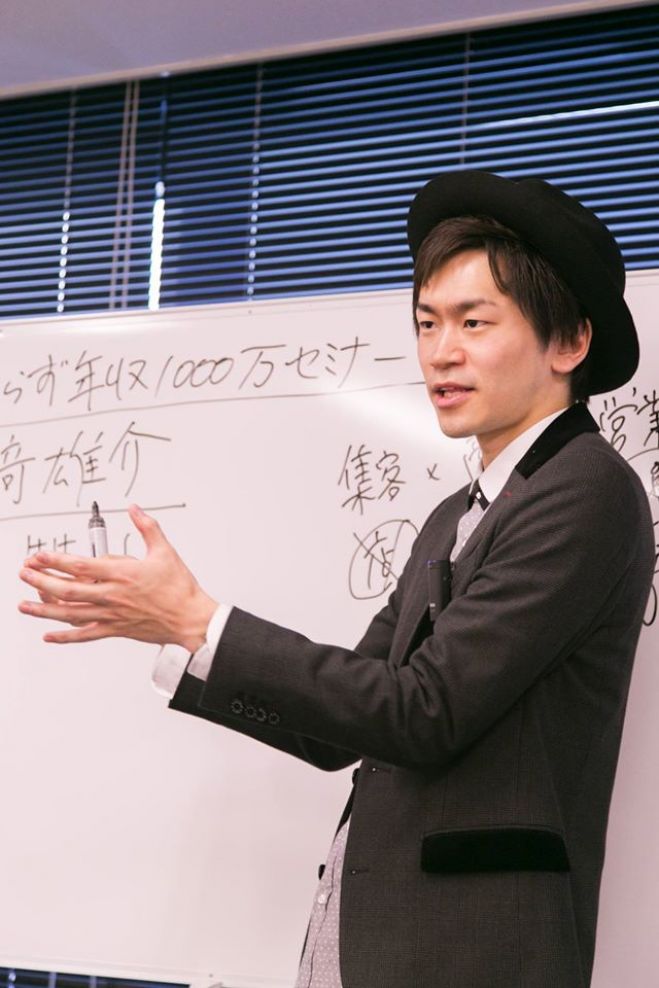 らず年収1000万セミナー
奇雄介
集客×
営業